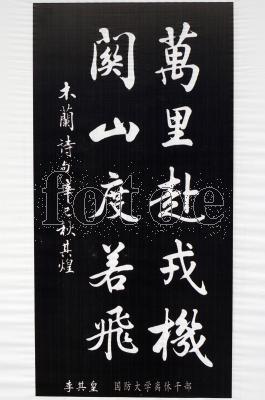 萬里赴戎機
關山度若飛
木蘭诗句辛巳秋其煌
李其皇 国防大学离休干部
fotoe